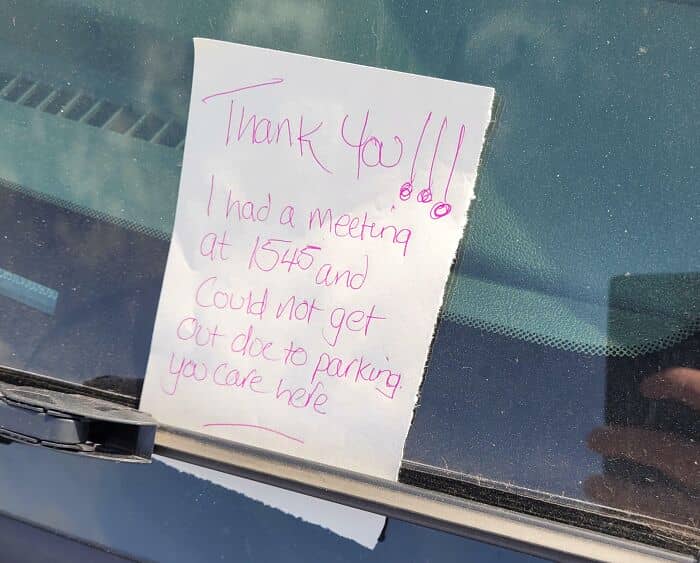 Thank You!!!
I had a meeting
at 1545 and
Could not get
out due to parking.
you care here